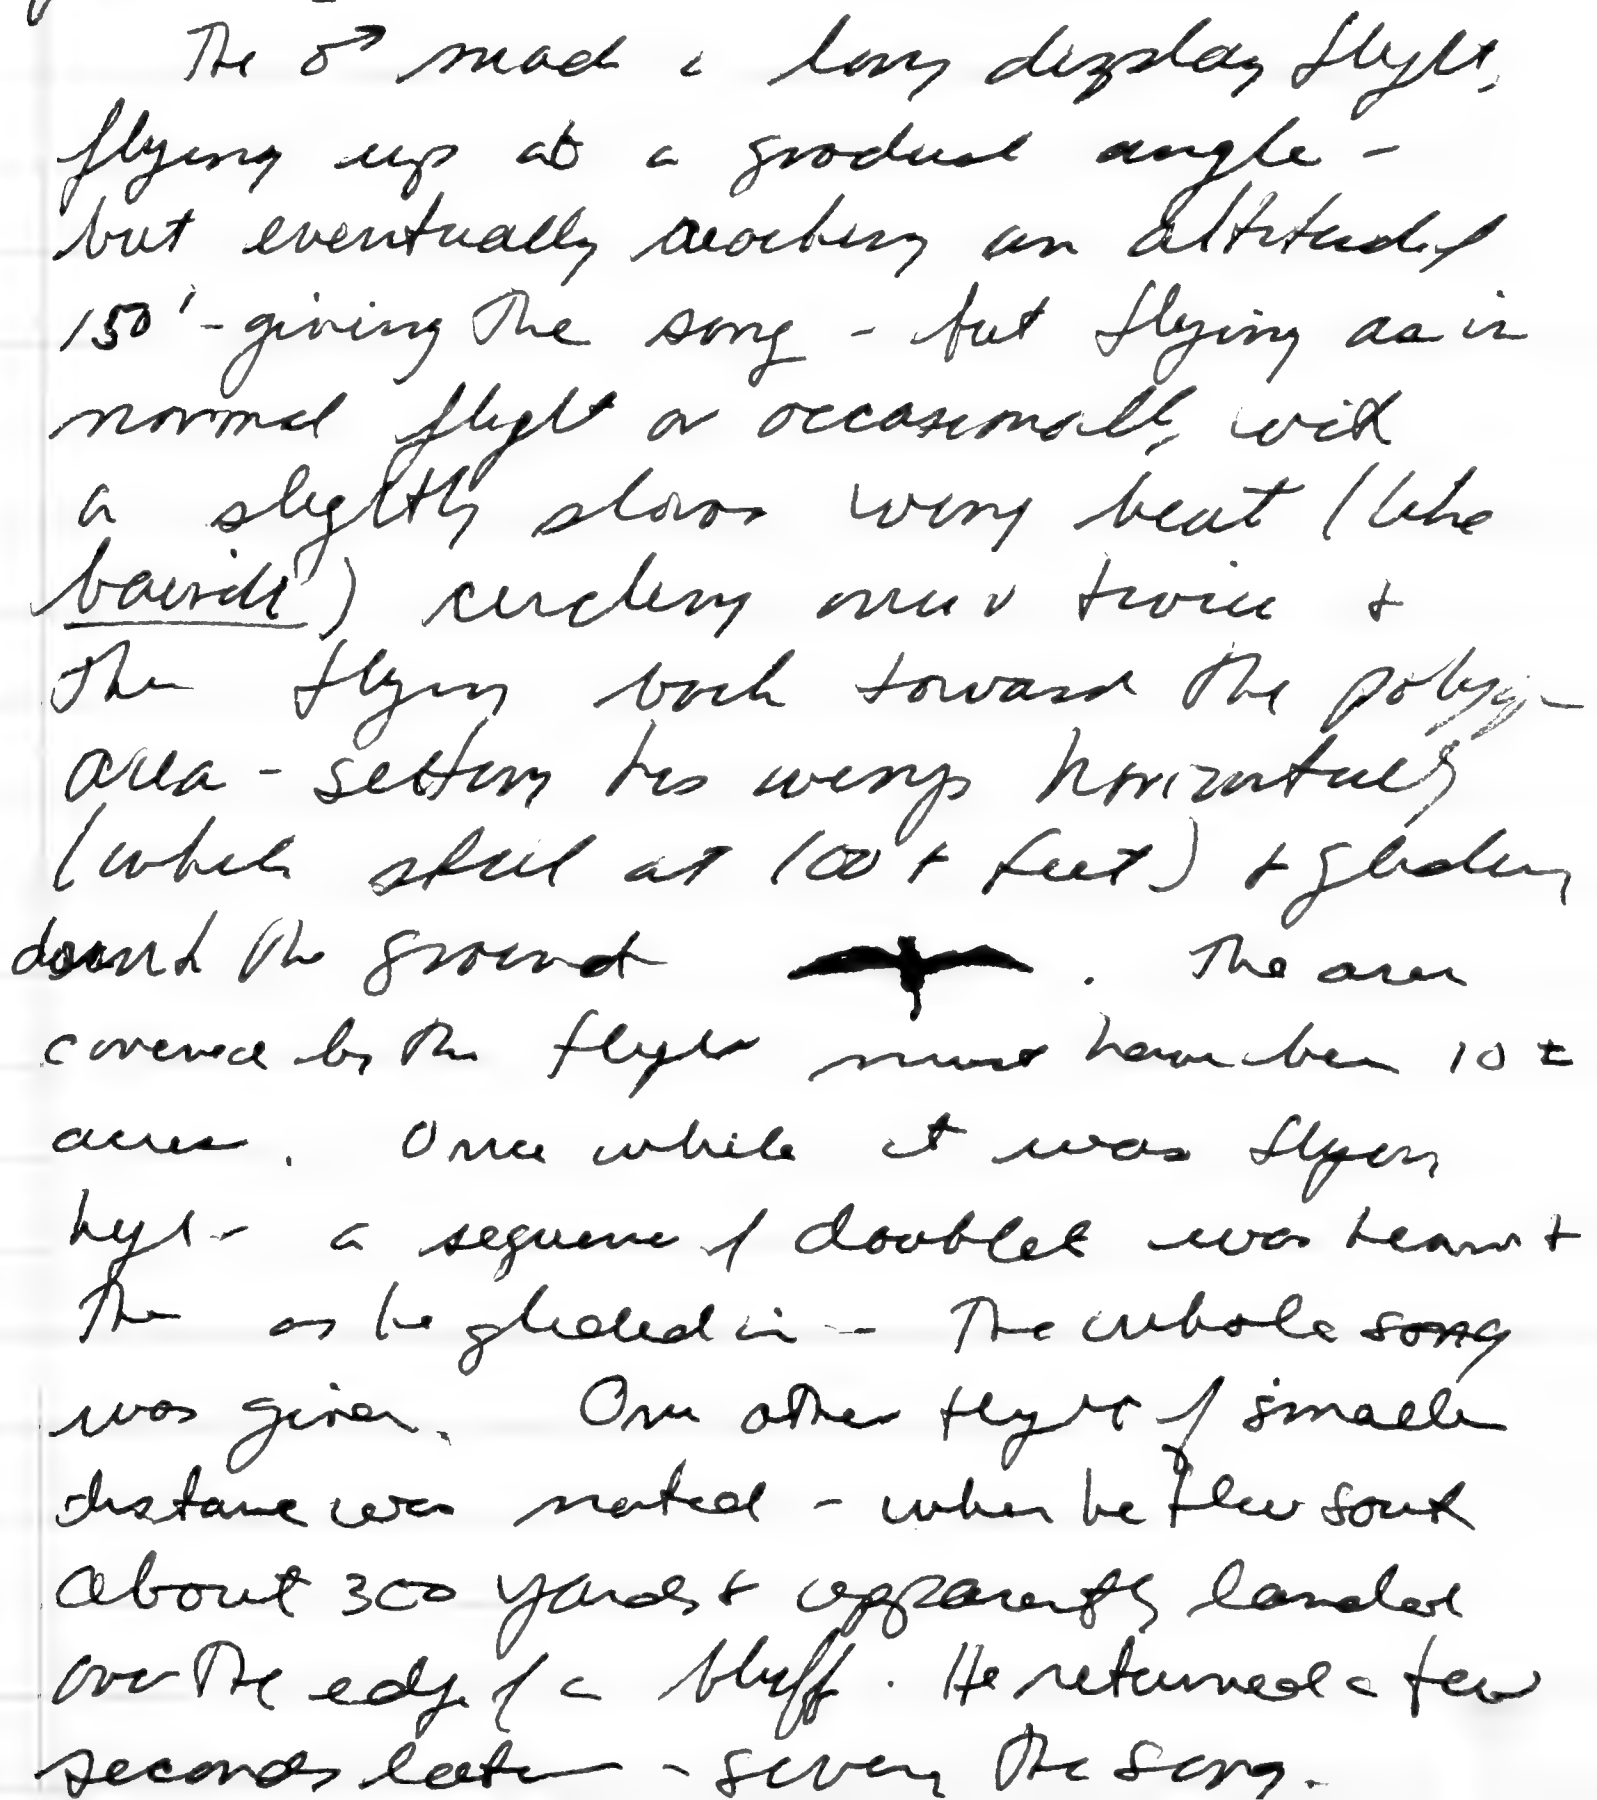 The ♂ made a long display flight,
flying up at a gradual angle -
but eventually reaching an altitude of
150' - giving the song - but flying as in
normal flight or occasionally with
a slightly slower wing beat (like
bairdi) circling once or twice +
then flying back toward the polygon
area - setting his wings horizontally
(while still at 100 + feet) + gliding
down to the ground . The area
covered by the flight must have been 10 ±
acres. Once while it was flying
high - a sequence of doublet was heard +
then as he glided in - the whole song
was given. One other flight of smaller
distance was noted - when he flew south
about 300 yards + apparently landed
over the edge of a bluff. He returned a few
seconds later - giving the song.